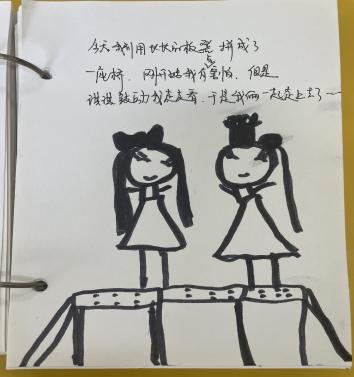 今天我们用长长的板凳拼成了
一座桥，刚开始我有点害怕，但是
说说鼓动我走走看，于是我俩一起走上去了~